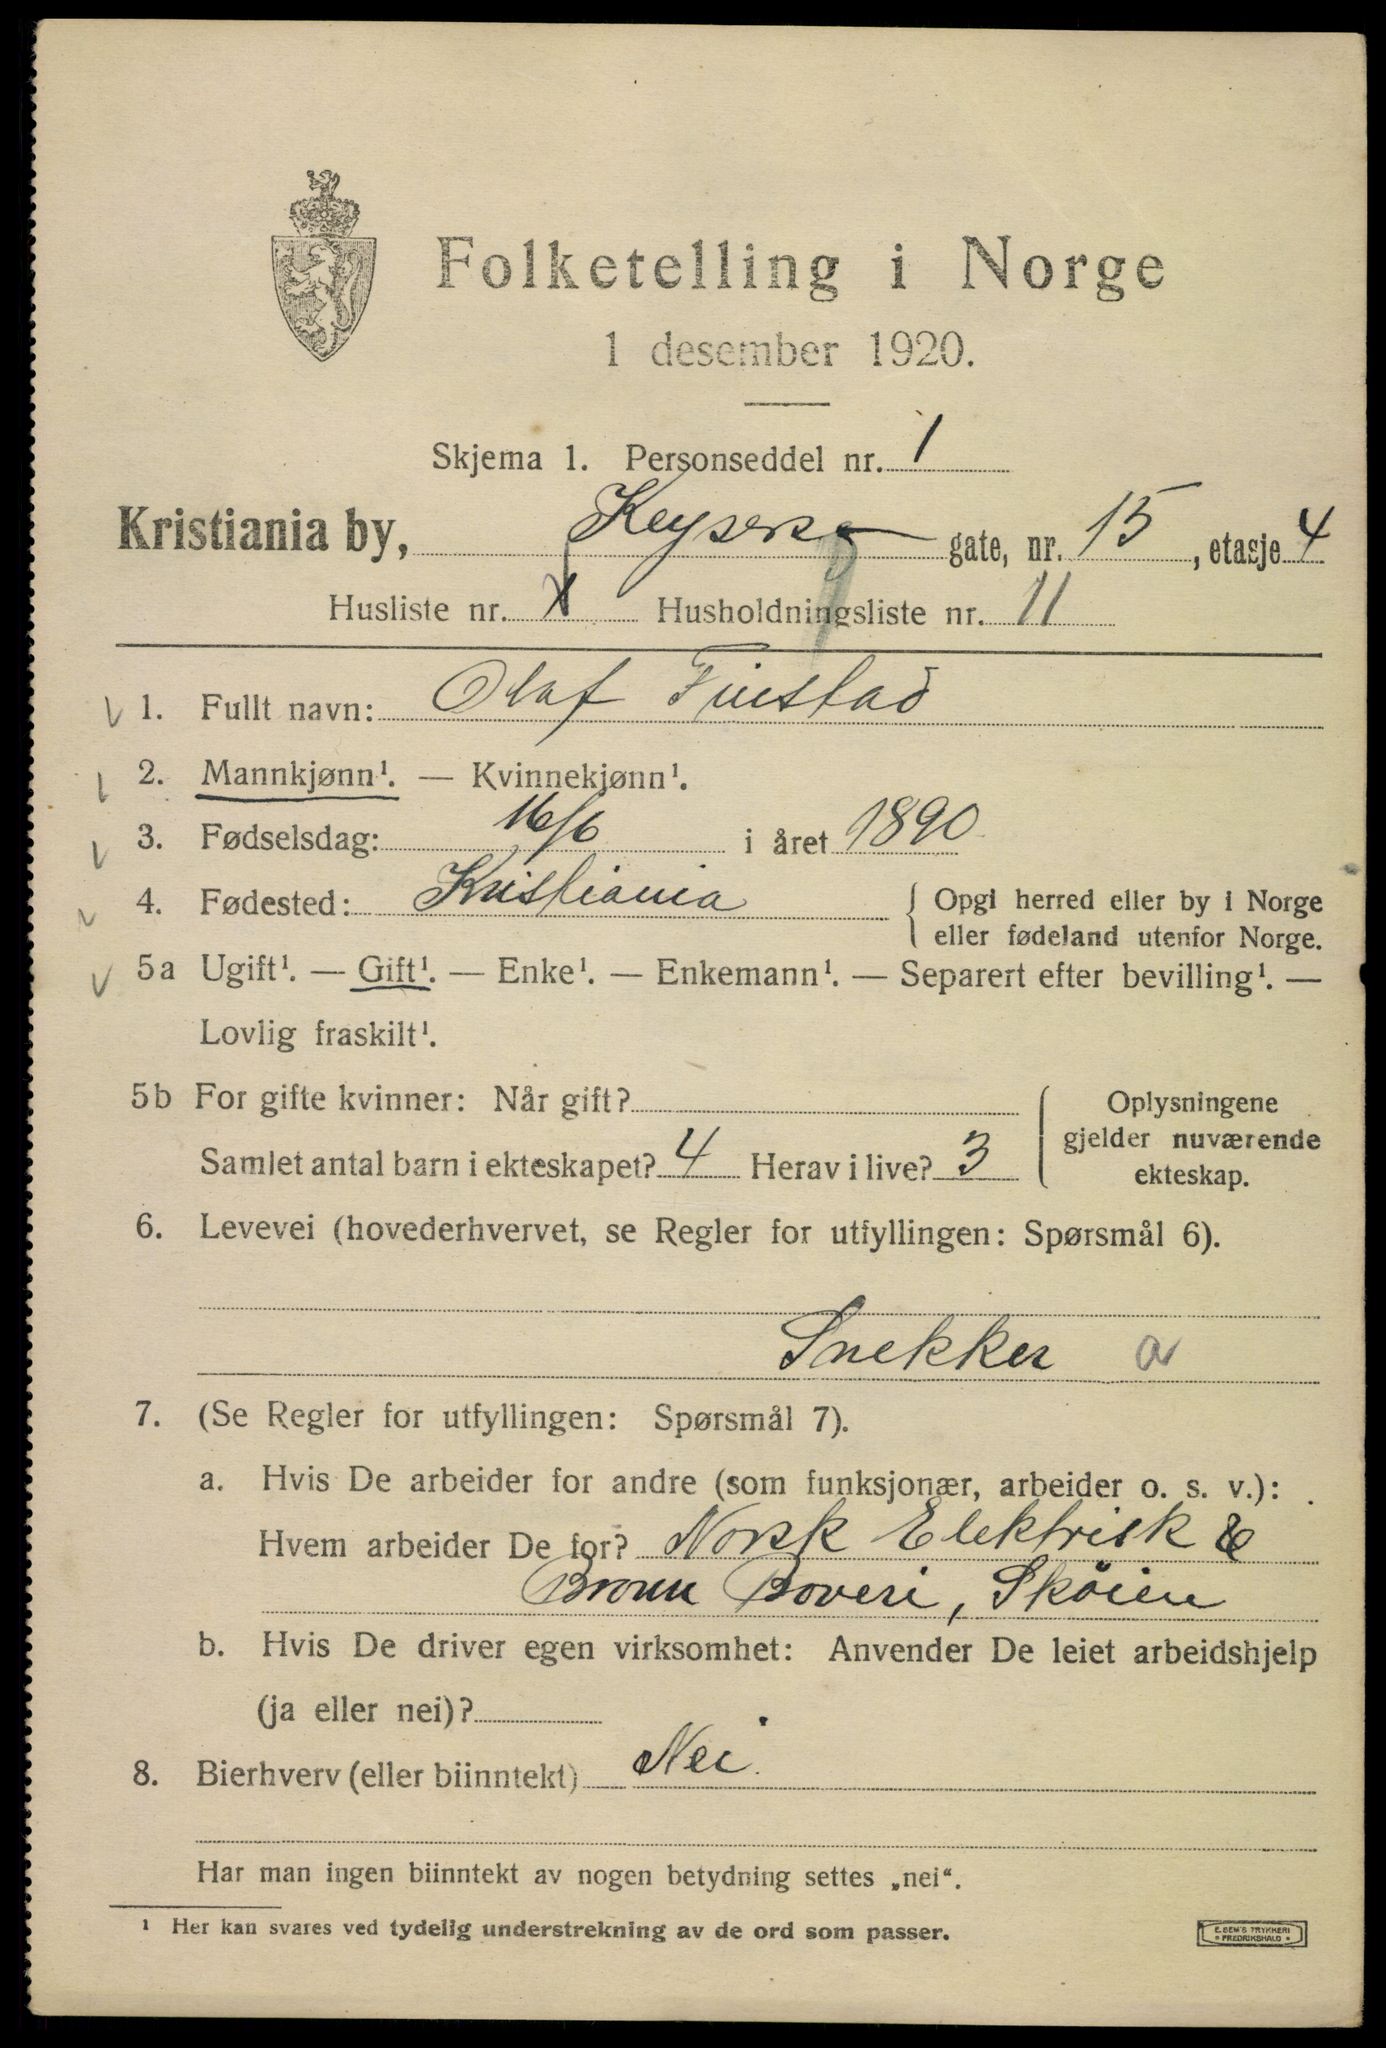 Folketelling i Norge
1 desember 1920.
Skjema 1. Personseddel nr. 1
Kristiania by, Keysers gate, nr. 15, etasje 4
Husliste nr. X Husholdningsliste nr. 11
1. Fullt navn: Olaf Finstad
2. Mannkjønn¹. — Kvinnekjønn¹.
3. Fødselsdag: 16/6 i året 1890
4. Fødested: Kristiania { Opgi herred eller by i Norge
eller fødeland utenfor Norge.
5a Ugift¹. — Gift¹. — Enke¹. — Enkemann¹. — Separert efter bevilling¹. —
Lovlig fraskilt¹.
5b For gifte kvinner: Når gift? { Oplysningene
gjelder nuværende
Samlet antal barn i ekteskapet? 4 Herav i live? 3
ekteskap.
6. Levevei (hovederhvervet, se Regler for utfyllingen: Spørsmål 6).
Snekker a
7. (Se Regler for utfyllingen: Spørsmål 7).
a. Hvis De arbeider for andre (som funksjonær, arbeider o. s. v.):
Hvem arbeider De for? Norsk Elektrisk &
Broun Boveri, Skøien
b. Hvis De driver egen virksomhet: Anvender De leiet arbeidshjelp
(ja eller nei)?
8. Bierhverv (eller biinntekt) Nei.
Har man ingen biinntekt av nogen betydning settes „nei“.
¹ Her kan svares ved tydelig understrekning av de ord som passer.
E. SEM'S TRYKKERI
* FREDRIKSHALD *